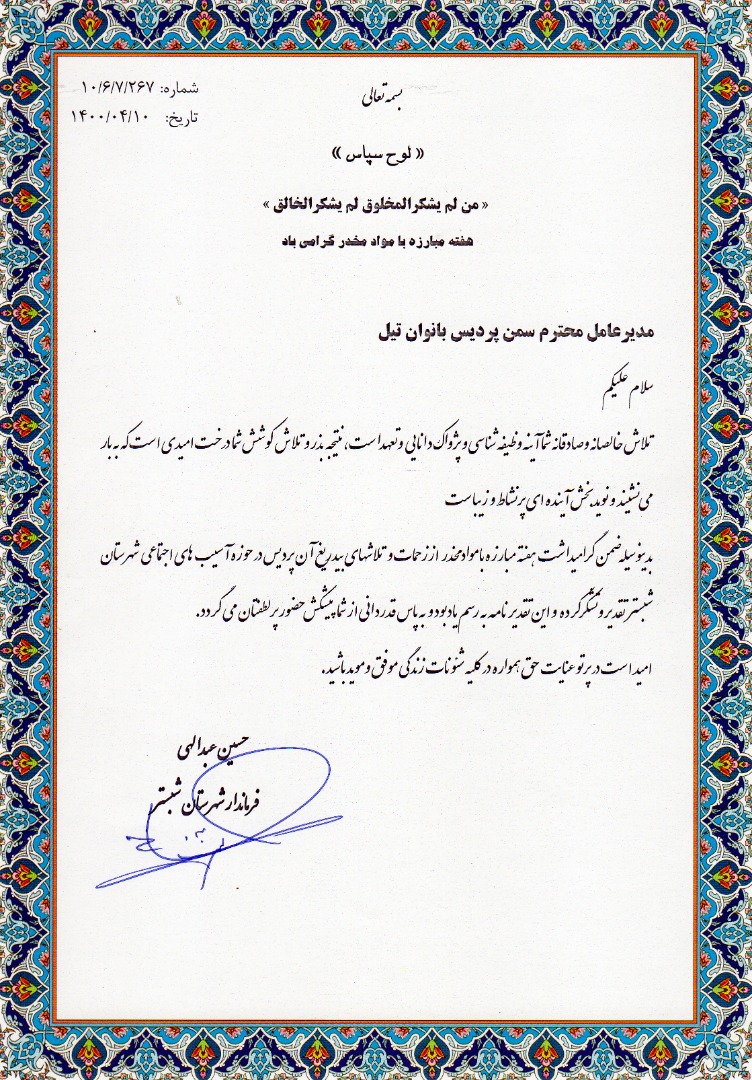 بسمه تعالی
شماره: ۱۰/۶/۷/۲۶۷
تاریخ: ۱۴۰۰/۰۴/۱۰
« لوح سپاس »
« من لم یشکرالمخلوق لم یشکرالخالق »
هفته مبارزه با مواد مخدر گرامی باد
مدیرعامل محترم سمن پردیس بانوان تیل
سلام علیکم
تلاش خالصانه وصادقانه شماآئینه وظیفه شناسی و پژواک دانایی و تعهداست، نتیجه بذر و تلاش کوشش شمادرخت امیدی است که به بار
می نشیند و نوید بخش آینده ای پرنشاط و زیباست
بدینوسیله ضمن گرامیداشت هفته مبارزه باموادمخدر اززحمات و تلاشهای بیدریغ آن پردیس در حوزه آسیب های اجتماعی شهرستان
شبسترتقدیر و تشکرکرده و این تقدیرنامه به رسم یادبود و به پاس قدردانی از شما پیشکش حضور پرلطفتان می گردد.
امیداست در پرتو عنایت حق همواره در کلیه شئونات زندگی موفق و موید باشید.
حسین عبدالهی
فرماندار شهرستان شبستر